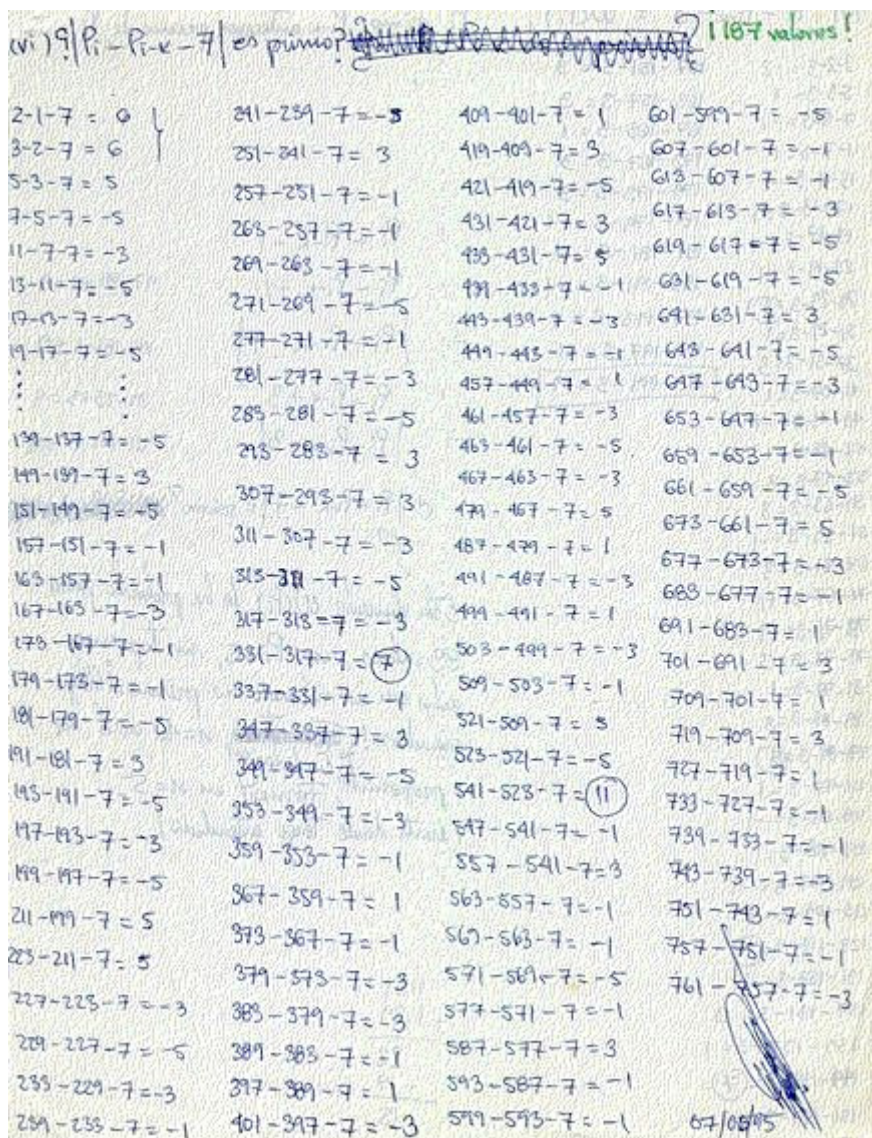 (vi) ¿|Pi - Pi-k - 7| es primo? ¡187 valores!
2-1-7 = 6
3-2-7 = 6
5-3-7 = 5
7-5-7 = -5
11-7-7 = -3
13-11-7 = -5
17-13-7 = -3
19-17-7 = -5
⋮ ⋮
139-137-7 = -5
149-139-7 = 3
151-149-7 = -5
157-151-7 = -1
163-157-7 = -1
167-163-7 = -3
173-167-7 = -1
179-173-7 = -1
181-179-7 = -5
191-181-7 = 3
193-191-7 = -5
197-193-7 = -3
199-197-7 = -5
211-199-7 = 5
223-211-7 = 5
227-223-7 = -3
229-227-7 = -5
233-229-7 = -3
239-233-7 = -1
241-239-7 = -5
251-241-7 = 3
257-251-7 = -1
263-257-7 = -1
269-263-7 = -1
271-269-7 = -5
277-271-7 = -1
281-277-7 = -3
283-281-7 = -5
293-283-7 = 3
307-293-7 = 3
311-307-7 = -3
313-311-7 = -5
317-313=7 = -3
331-317-7 = 7
337-331-7 = -1
347-337-7 = 3
349-347-7 = -5
353-349-7 = -3
359-353-7 = -1
367-359-7 = 1
373-367-7 = -1
379-373-7 = -3
383-379-7 = -3
389-383-7 = -1
397-389-7 = 1
401-397-7 = -3
409-401-7 = 1
419-409-7 = 3
421-419-7 = -5
431-421-7 = 3
433-431-7 = 5
439-433-7 = -1
443-439-7 = -3
449-443-7 = -1
457-449-7 = 1
461-457-7 = -3
463-461-7 = -5
467-463-7 = -3
479-467-7 = 5
487-479-7 = 1
491-487-7 = -3
499-491-7 = 1
503-499-7 = -3
509-503-7 = -1
521-509-7 = 5
523-521-7 = -5
541-523-7 = 11
547-541-7 = -1
557-541-7 = 3
563-557-7 = -1
569-563-7 = -1
571-569-7 = -5
577-571-7 = -1
587-577-7 = 3
593-587-7 = -1
599-593-7 = -1
601-599-7 = -5
607-601-7 = -1
613-607-7 = -1
617-613-7 = -3
619-617=7 = -5
631-619-7 = -5
641-631-7 = 3
643-641-7 = -5
647-643-7 = -3
653-647-7 = -1
659-653-7 = -1
661-659-7 = -5
673-661-7 = 5
677-673-7 = -3
683-677-7 = -1
691-683-7 = 1
701-691-7 = 3
709-701-7 = 1
719-709-7 = 3
727-719-7 = 1
733-727-7 = -1
739-733-7 = -1
743-739-7 = -3
751-743-7 = 1
757-751-7 = -1
761-757-7 = -3